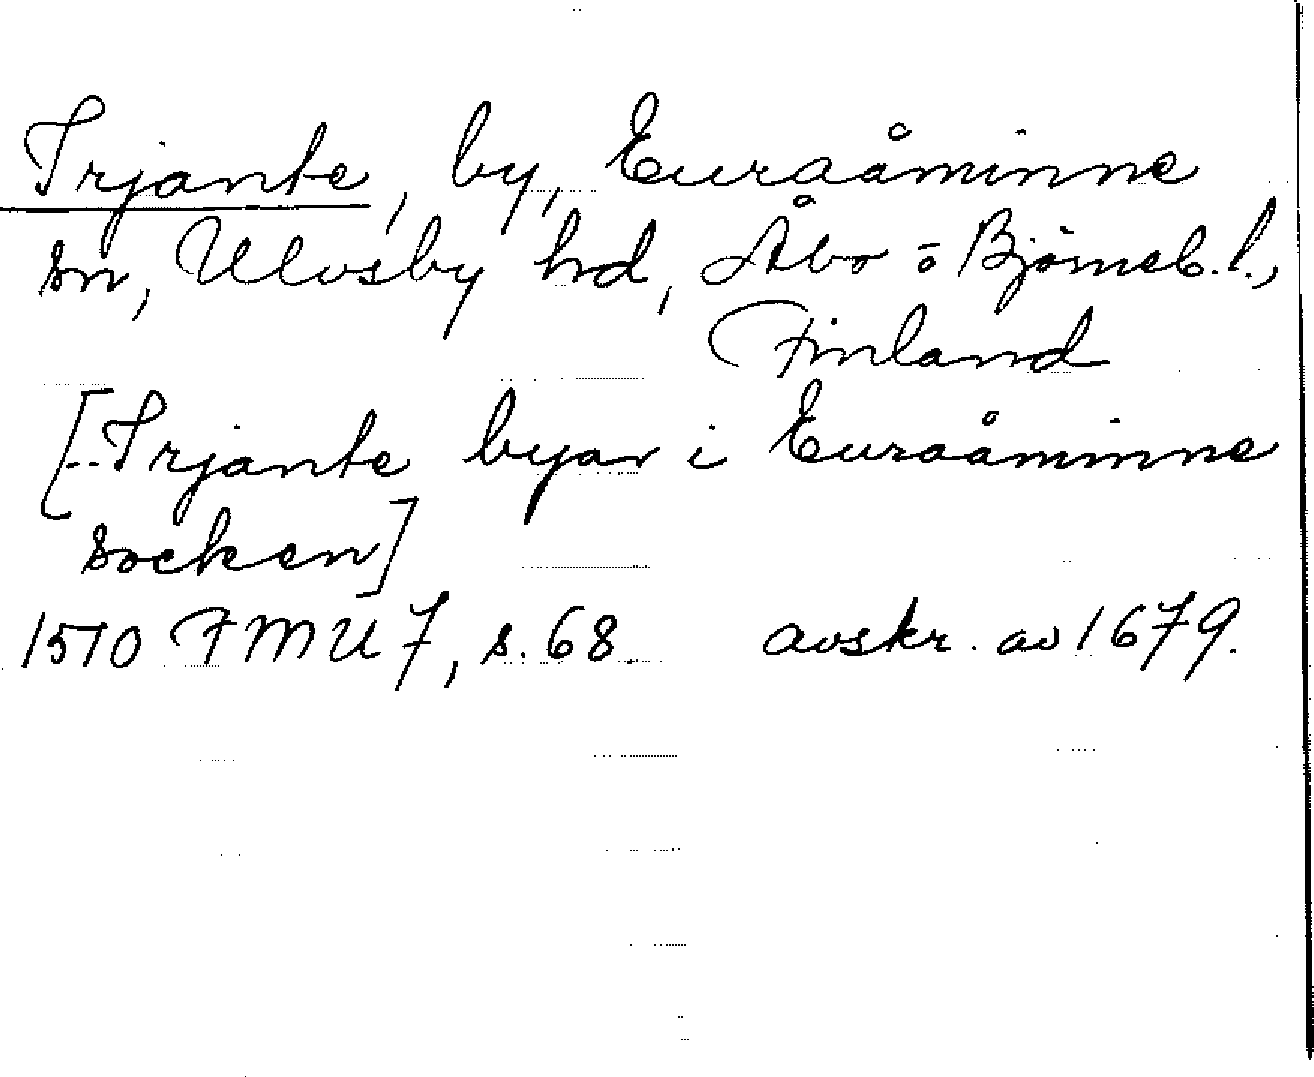 Irjante, by, Euraåminne
sn, Ulvsby hd, Åbo o Björneb. l.,
Finland
[..Irjante byar i Euraåminne
socken]
1510 FMU 7, s. 68. avskr. av 1679.